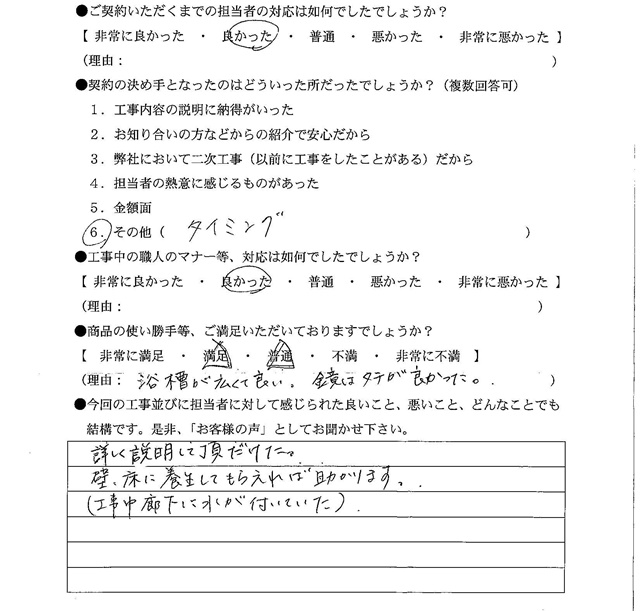 ●ご契約いただくまでの担当者の対応は如何でしたでしょうか？
【 非常に良かった ・ 良かった ・ 普通 ・ 悪かった ・ 非常に悪かった 】
（理由： ）
●契約の決め手となったのはどういった所だったでしょうか？（複数回答可）
１．工事内容の説明に納得がいった
２．お知り合いの方などからの紹介で安心だから
３．弊社において二次工事（以前に工事をしたことがある）だから
４．担当者の熱意に感じるものがあった
５．金額面
６．その他（ タイミング ）
●工事中の職人のマナー等、対応は如何でしたでしょうか？
【 非常に良かった ・ 良かった ・ 普通 ・ 悪かった ・ 非常に悪かった 】
（理由： ）
●商品の使い勝手等、ご満足いただいておりますでしょうか？
【 非常に満足 ・ 満足 ・ 普通 ・ 不満 ・ 非常に不満 】
（理由： 浴槽が広くて良い。鏡はタテが良かった。 ）
●今回の工事並びに担当者に対して感じられた良いこと、悪いこと、どんなことでも
結構です。是非、「お客様の声」としてお聞かせ下さい。
詳しく説明して頂だけた。
壁、床に養生してもらえれば助かります。
（工事中廊下に水が付いていた）．